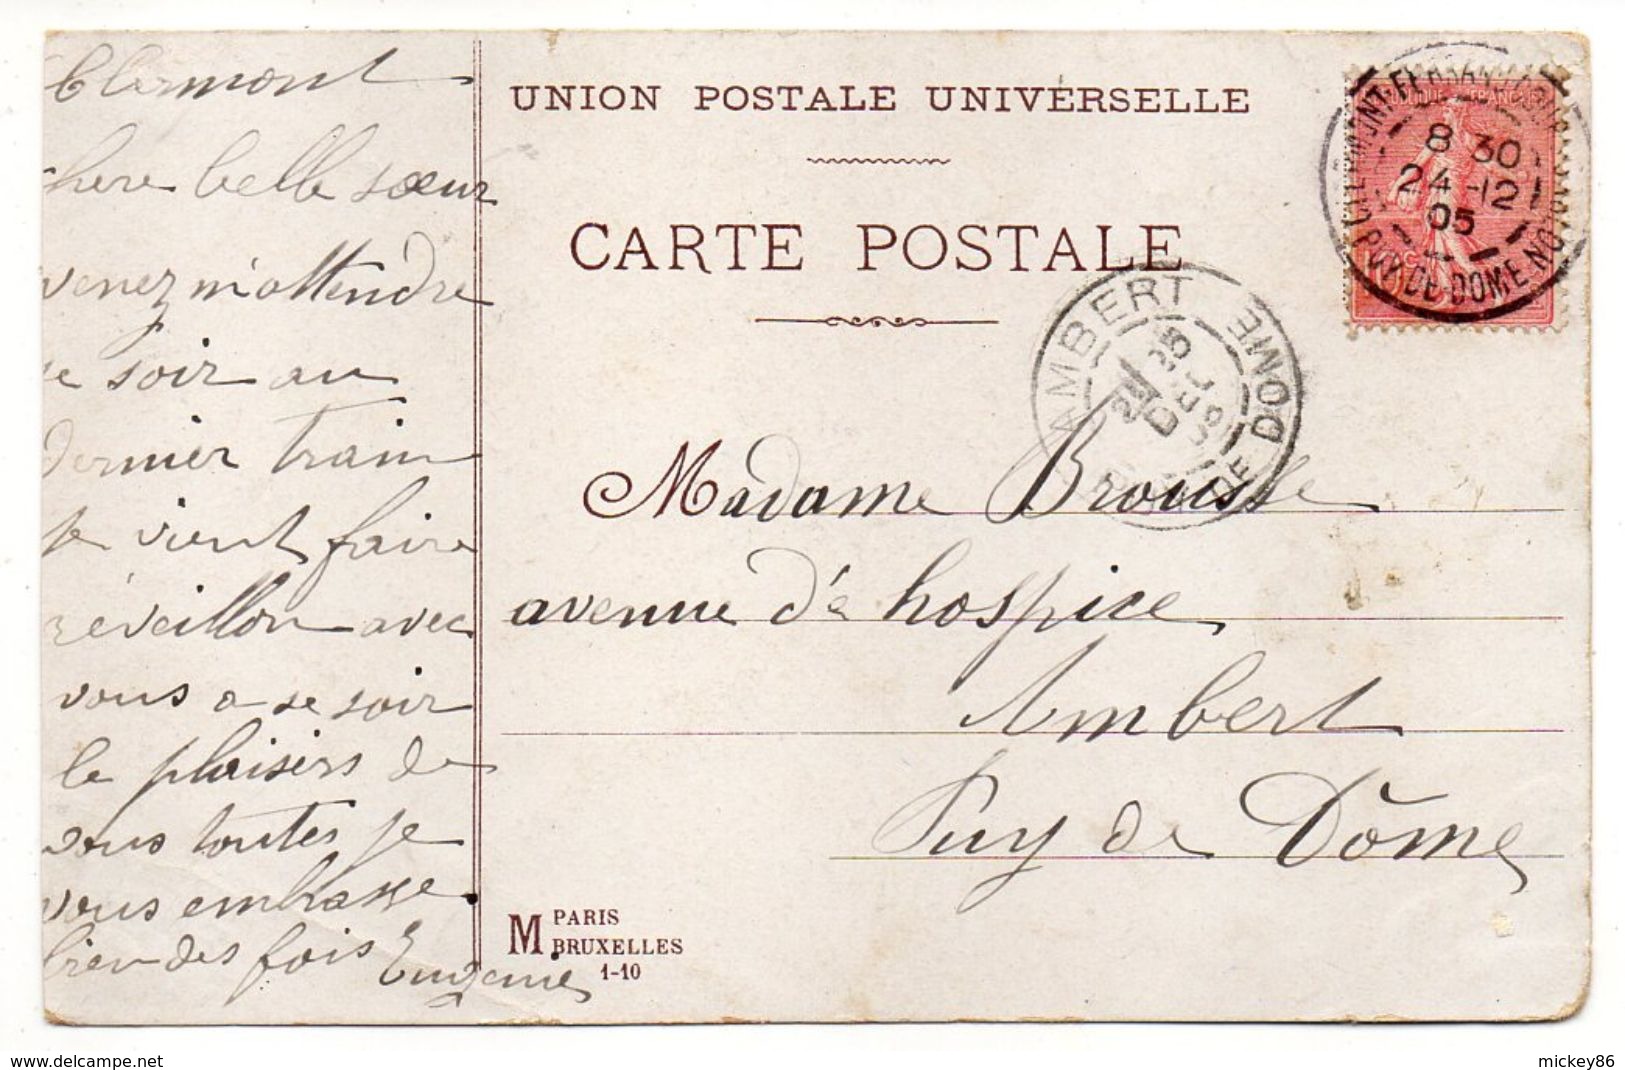 Clermont
chere belle sœur
venez m'attendre
se soir au
dernier train
je vient faire
réveillon avec
vous a se soir
le plaisirs de
vous toutes je
vous embrasse.
bien des fois Eugenie
UNION POSTALE UNIVERSELLE
CARTE POSTALE
Madame Brousse
avenue de hospice
Ambert
Puy de Dôme
M PARIS
BRUXELLES
1-10
CLERMONT-FERRAND
8 30
24-12
05
PUY-DE-DOME
REPUBLIQUE FRANÇAISE
AMBERT
25
DEC
05
DE DOME
www.delcampe.net
mickey86